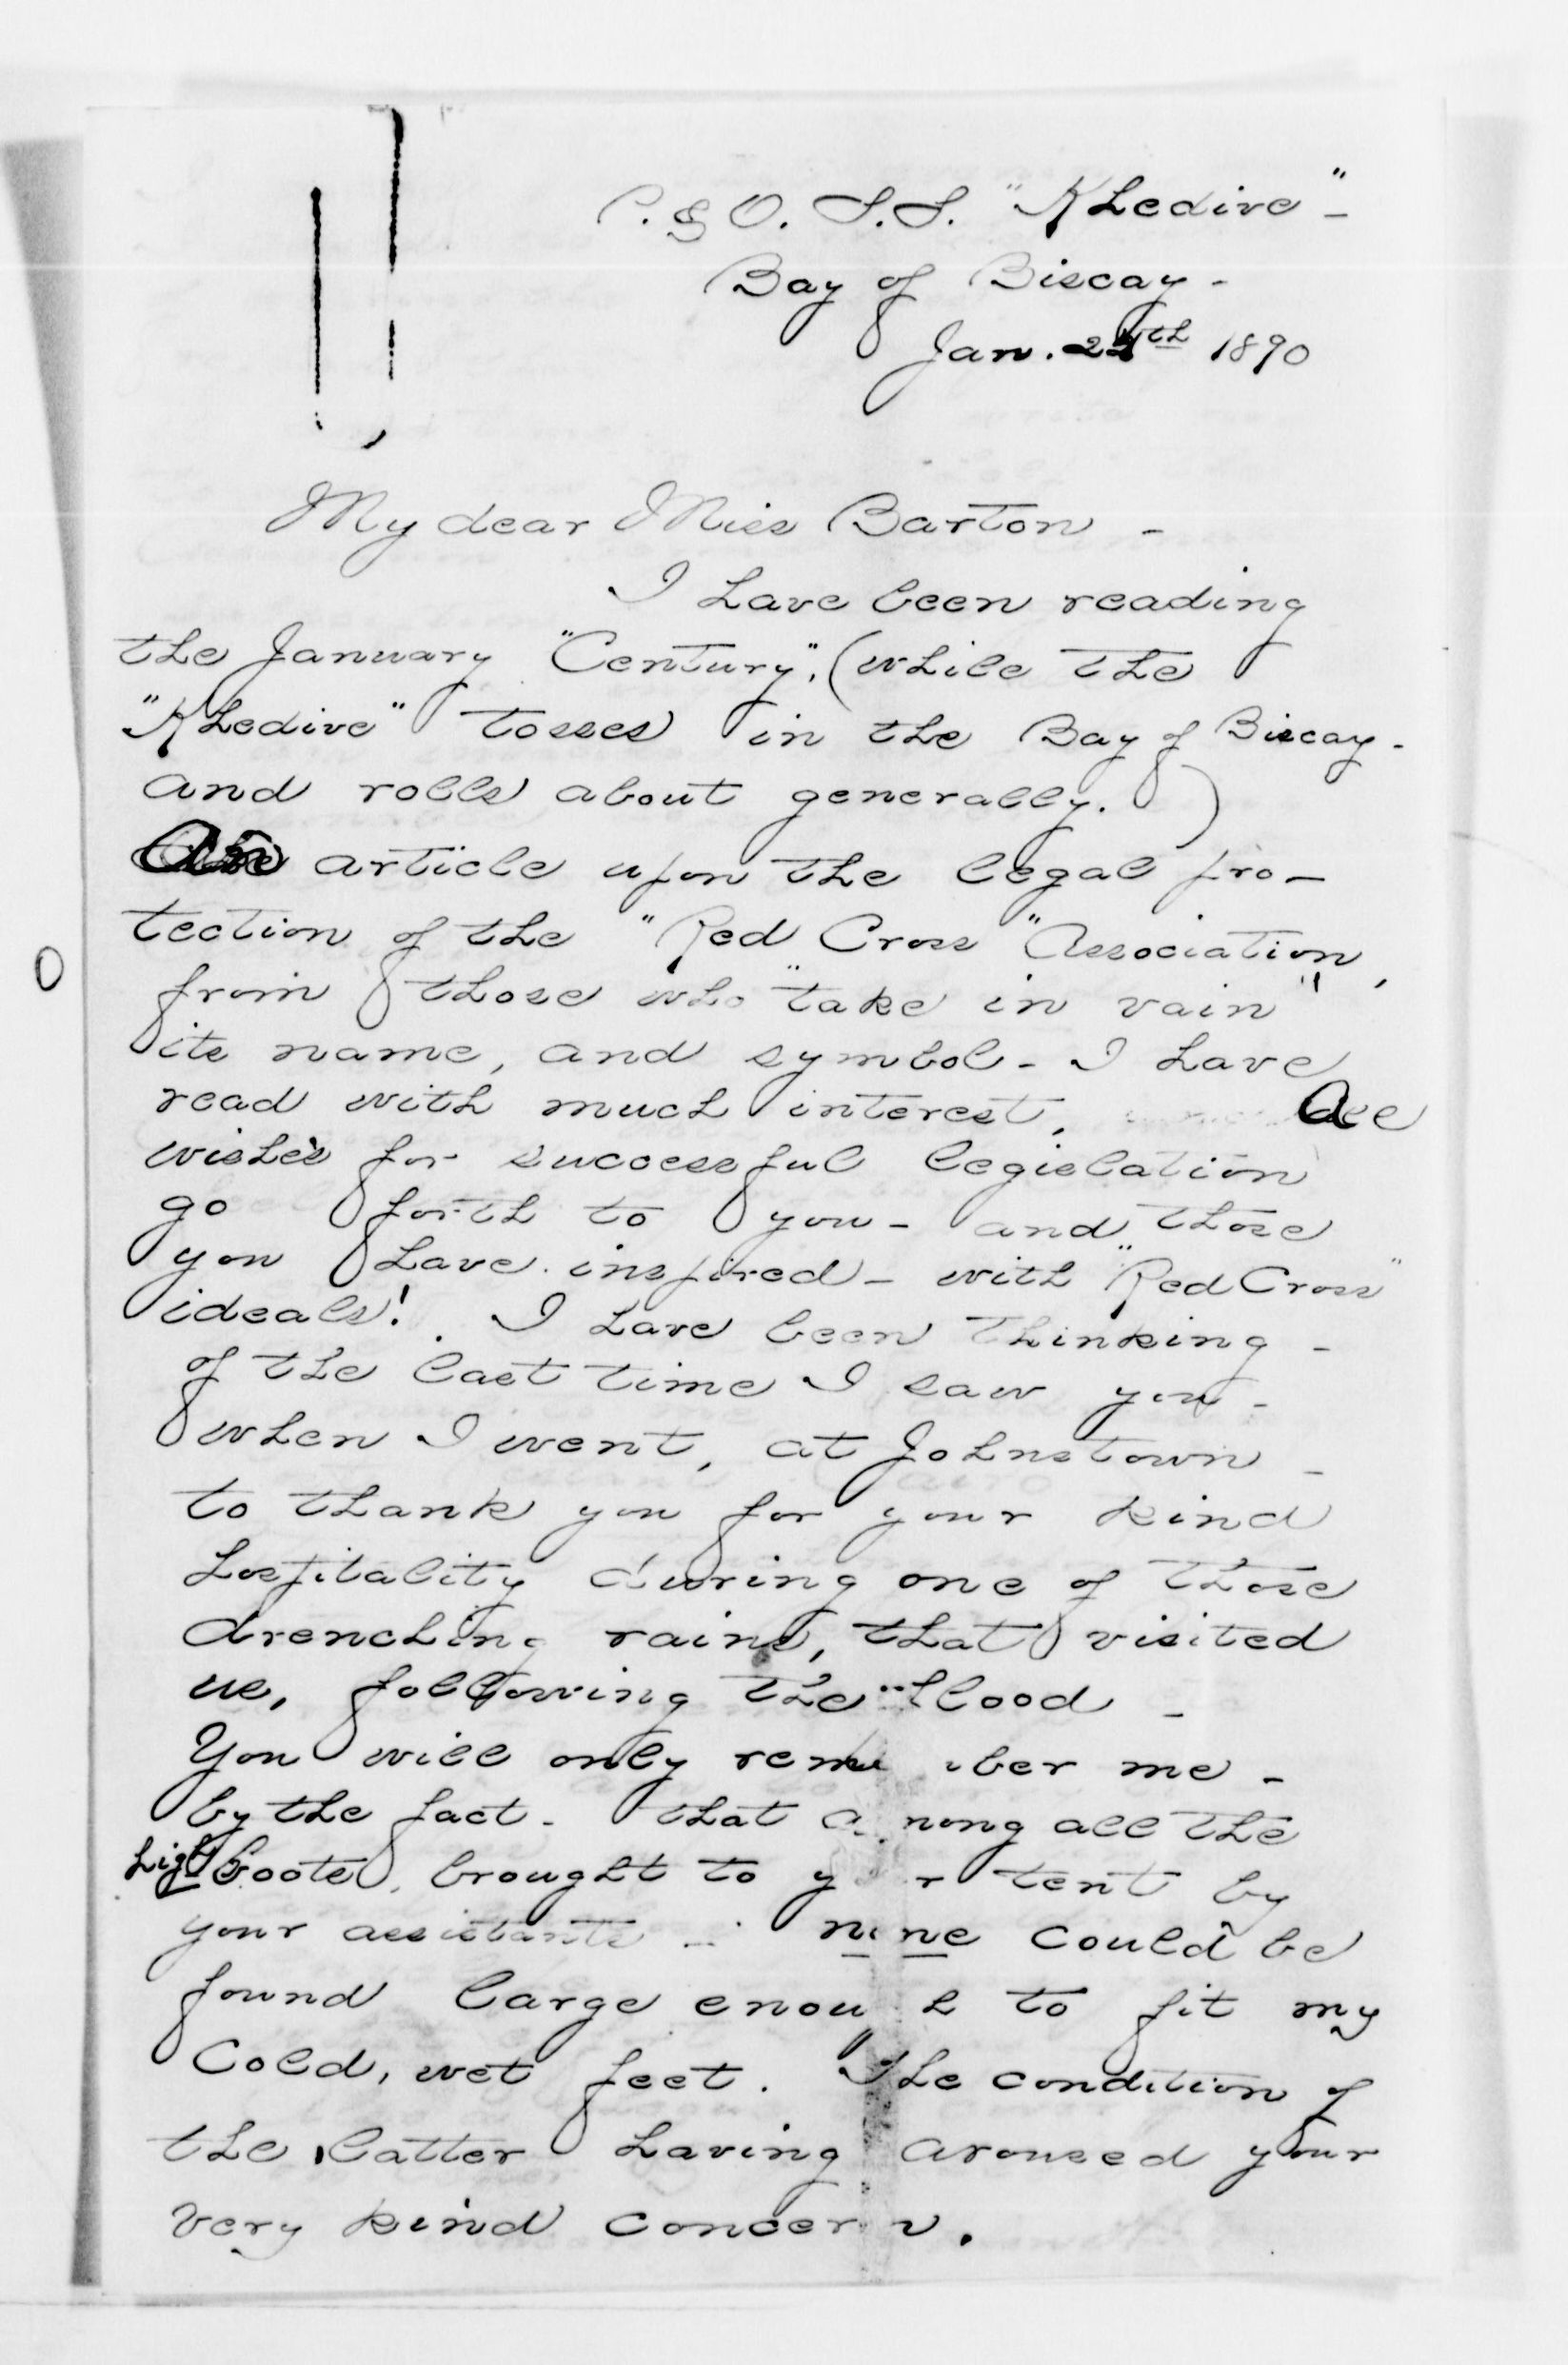 P. & O. S.S. "Khedive" -
Bay of Biscay -
Jan. 24th 1890
My dear Miss Barton -
I have been reading
the January "Century", (while the
"Khedive" tosses in the Bay of Biscay -
and rolls about generally.)
An article upon the legal pro-
tection of the "Red Cross" Association,
from those who "take in vain"
its name, and symbol - I have
read with much interest. All
wishes for successful legislation
go forth to you - and those
you have inspired - with "Red Cross"
ideals! I have been thinking -
of the last time I saw you -
when I went, at Johnstown -
to thank you for your kind
hospitality during one of those
drenching rains, that visited
us, following the flood -
You will only remember me -
by the fact - that among all the
high boots, brought to your tent by
your assistants - none could be
found large enough to fit my
cold, wet feet. The condition of
the latter having aroused your
very kind concern.